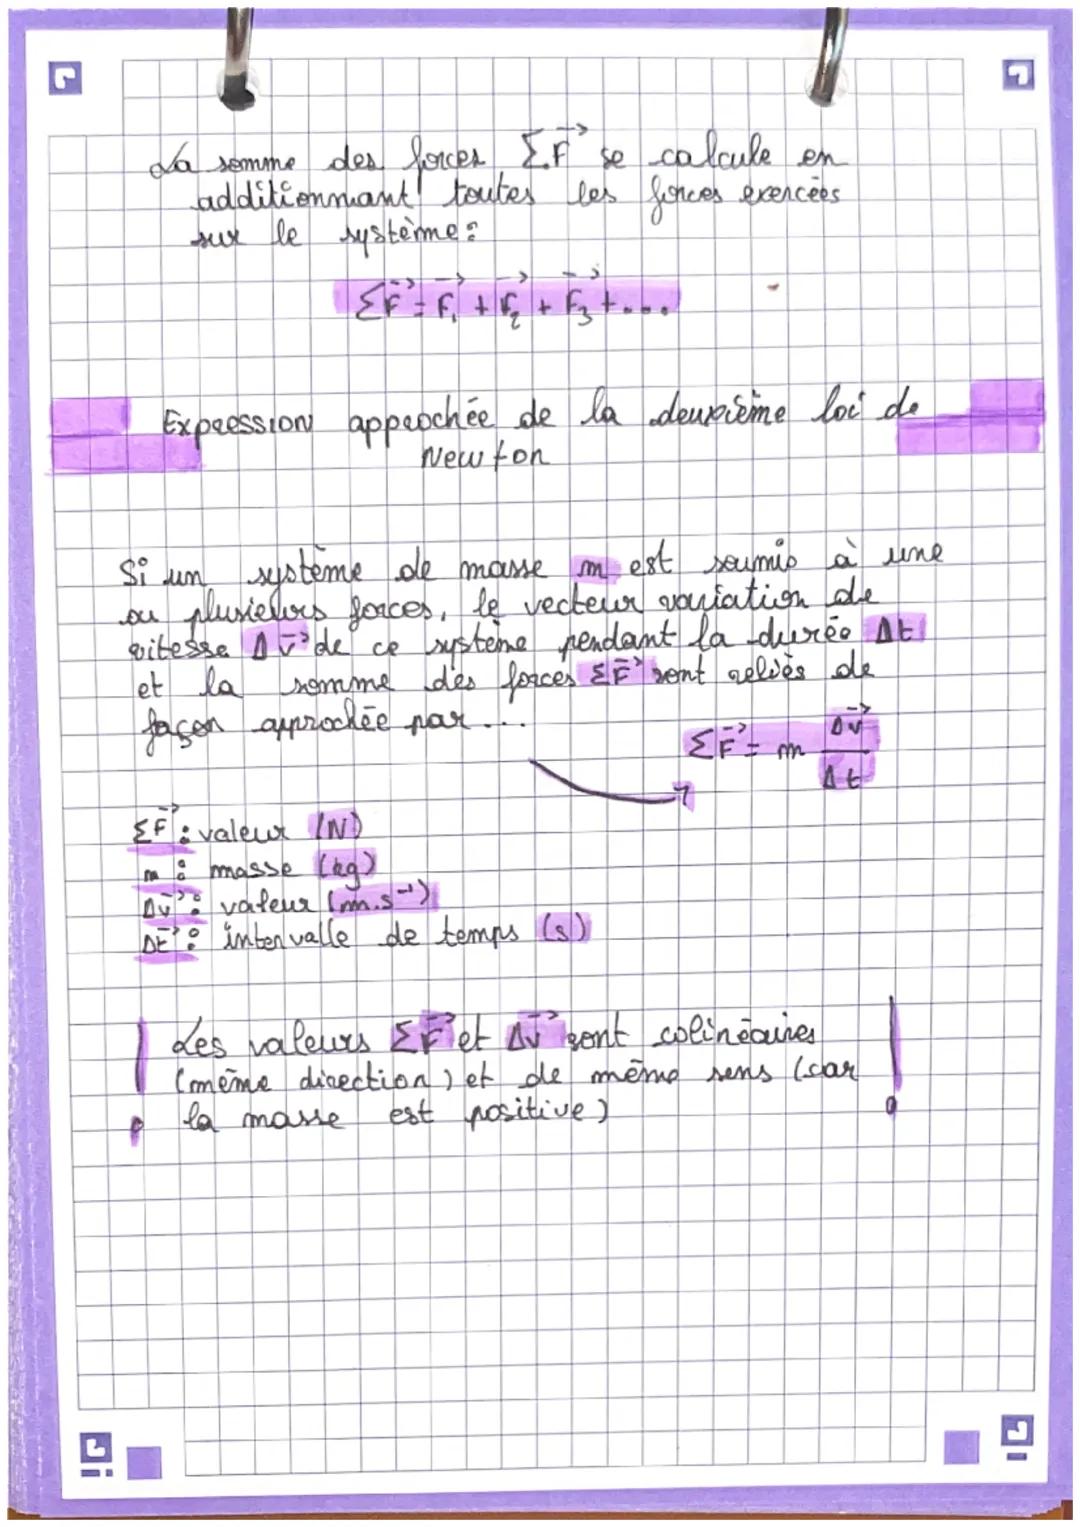 La somme des forces Σ.F⃗ se calcule en
additionnant toutes les forces exercées
sur le système :
ΣF⃗ = F⃗₁ + F⃗₂ + F⃗₃ + ....
Expression approchée de la deuxième loi de
Newton
Si un système de masse m est soumis à une
ou plusieurs forces, le vecteur variation de
vitesse Δv⃗ de ce système pendant la durée Δt
et la somme des forces ΣF⃗ sont reliés de
façon approchée par ...
ΣF⃗ = m Δv⃗/Δt
ΣF⃗ : valeur (N)
m : masse (kg)
Δv⃗ : valeur (m.s⁻¹)
Δt⃗ : intervalle de temps (s)
Les valeurs ΣF⃗ et Δv⃗ sont colinéaires
(même direction) et de même sens (car
la masse est positive)